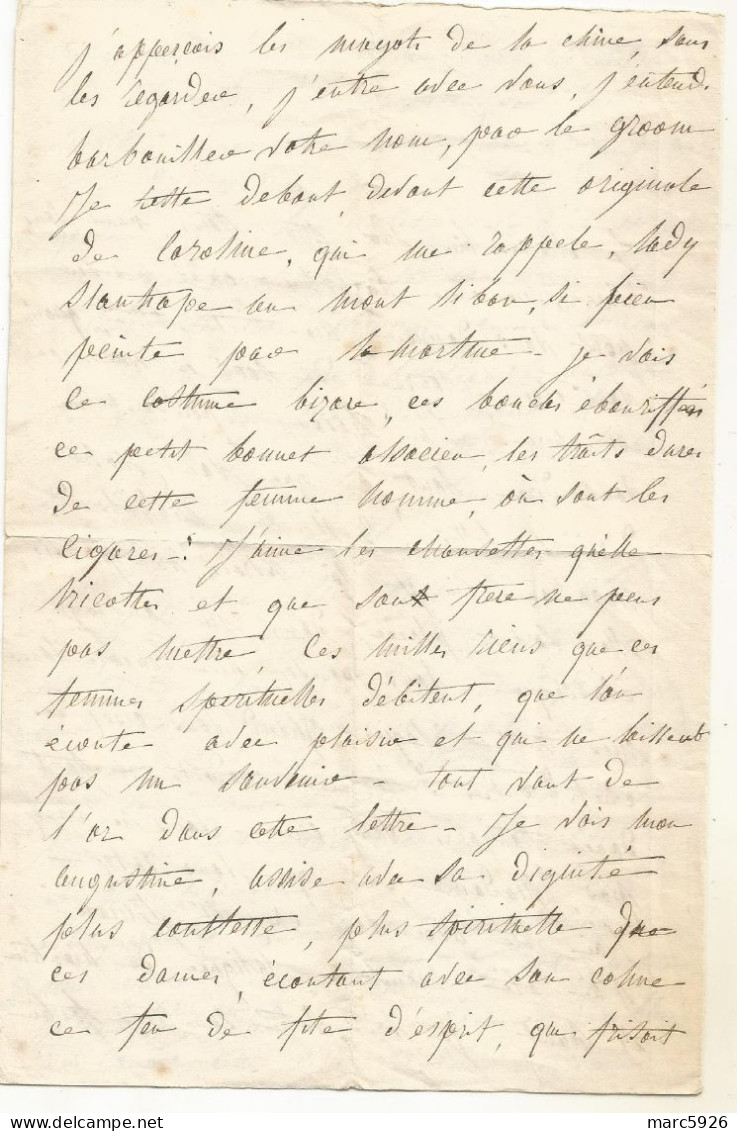 j'apperçois les magots de la chine, sans
les regarder, j'entre avec vous, j'entends
barbouiller votre nom, par le groom
Je reste debout, devant cette originale
de Caroline, qui me rappele, lady
Stanhope au mont liban, si bien
peinte par lamartine - je vois
ce costume bizare, ces boucles ébouriffées
ce petit bonnet alsacien, les traits dures
de cette femme homme, où sont les
cigares -! J'aime les chaussettes qu'elle
tricottes et que son frere ne peus
pas mettre, Ces milles riens que ces
femmes spirituelles débitent, que l'on
écoute avec plaisir et qui ne laissent
pas un souvenir - tout vaut de
l'or dans cette lettre - Je vois mon
augustine, assise avec sa diginité
plus, plus spirituelle que
ces dames, écoutant avec son calme
ce feu de file d'esprit, qui frisoit
marc5926